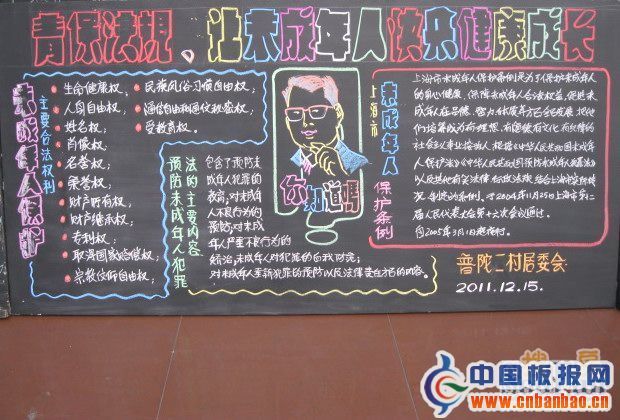 青保法规、让未成年人快乐健康成长
未成年人保护
主要合法权利
生命健康权;
人身自由权,
姓名权,
肖像权,
名誉权,
荣誉权,
财产所有权,
财产继承权,
专利权;
取得国家赔偿权,
宗教信仰自由权,
民族风俗习惯自由权,
通信自由和通信秘密权,
受教育权。
预防未成年人犯罪
法的主要内容
包含了预防未
成年人犯罪的
教育,对未成年
人不良行为的
预防;对未成
年人严重不良行为的
矫治;未成年人对犯罪的自我防范;
对未成年人重新犯罪的预防以及法律责任方面的内容。
你知道吗
上海市
未成年人
保护条例
上海市未成年人保护条例是为了保护未成年人
的身心健康,保障未成年人合法权益,促进未
成年人在品德、智力、体质等方面全面发展,把他
们培养成为有理想、有道德、有文化、有纪律的
社会主义事业接班人,根据《中华人民共和国未成年
人保护法》《中华人民共和国预防未成年人犯罪法》
以及其他有关法律、行政法规,结合上海市实际情
况,制定的条例。于2004年11月25日上海市第十二
届人民代表大会第十六次会议通过。
自2005年3月1日起施行。
普陀二村居委会
2011.12.15.
中国板报网
www.cnbanbao.cn